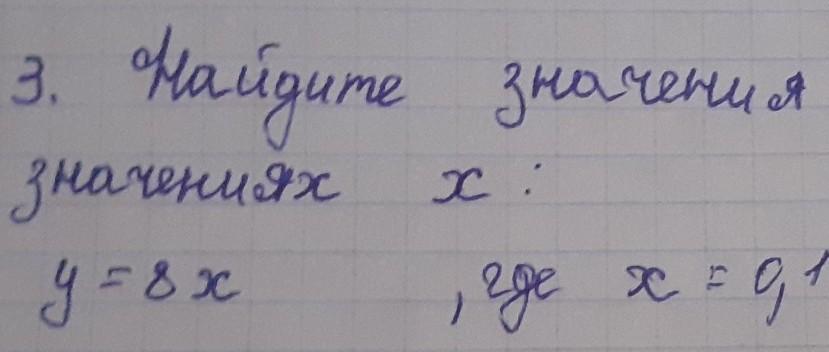 3. Найдите значения
значениях x :
y = 8x , где x = 0,1